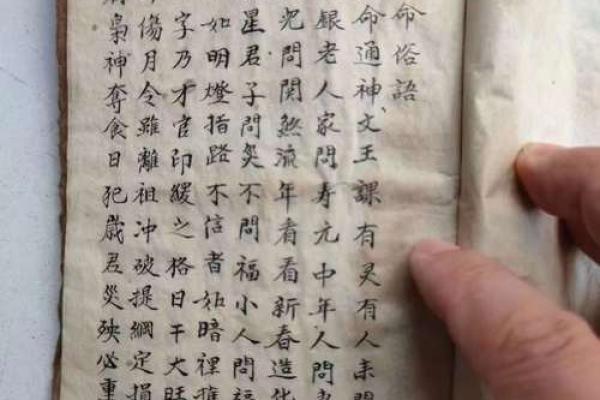 命俗語
命通神文王課有灵有人来問
銀老人家問寿元中年人問
児問関煞流年看看新春造化
星君子問災不問福小人問福
如明燈指路不信者如暗裡
字乃才官印綬之格日干大旺
傷月令雖離祖冲破提綱定損
梟神奪食日犯歳君災殃必重